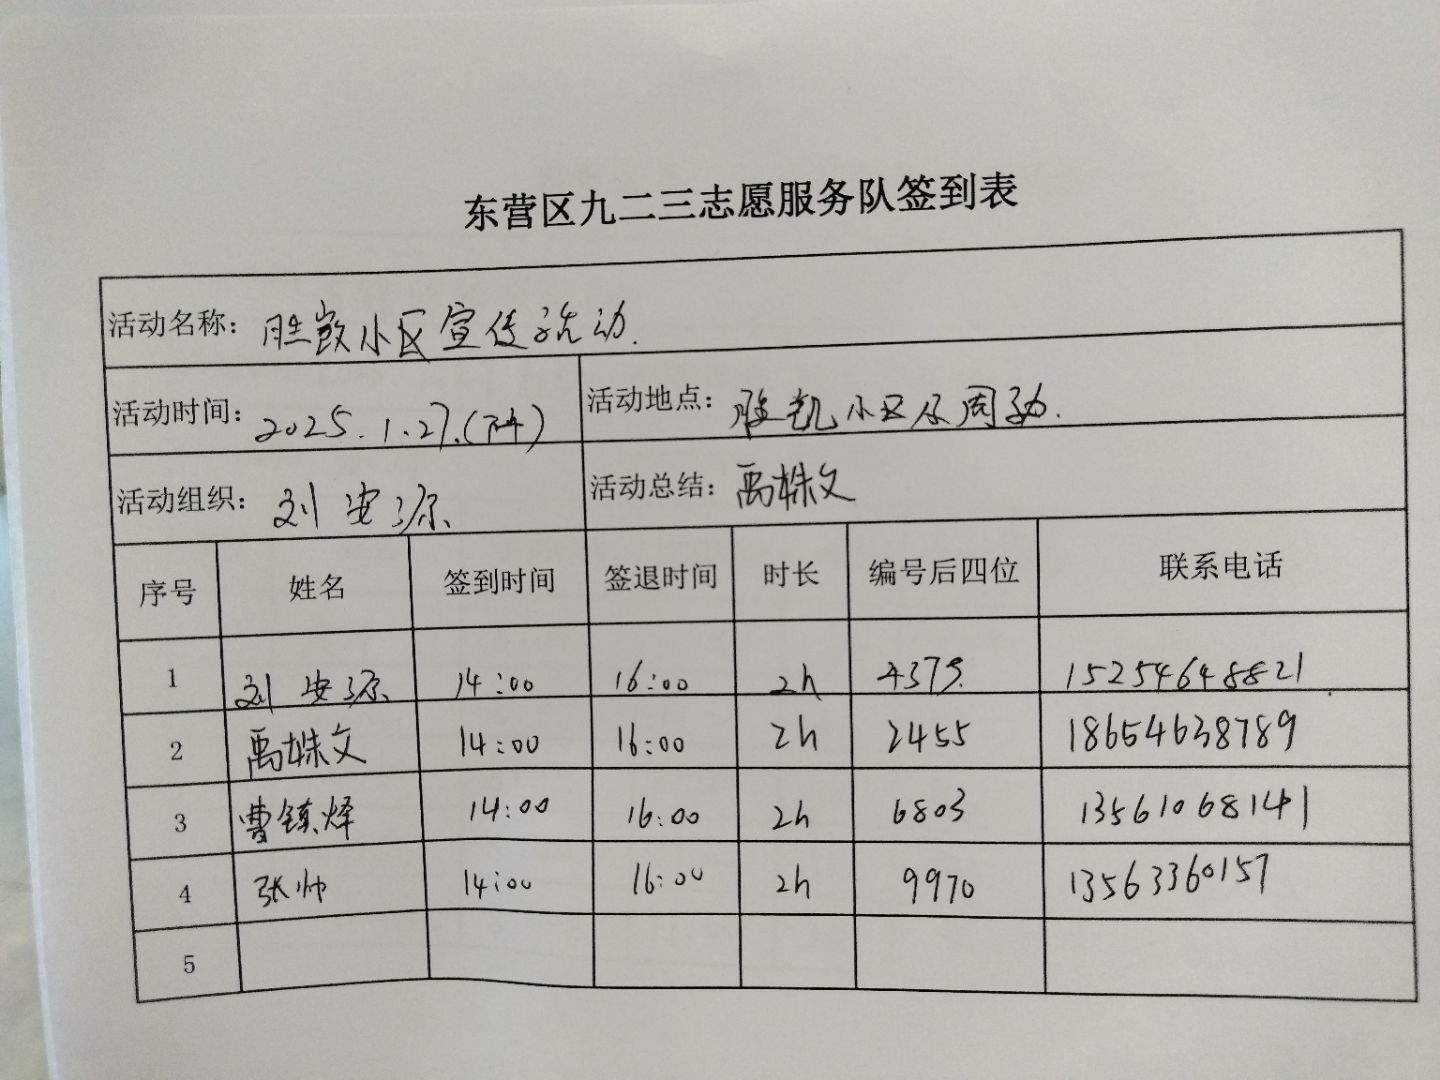 东营区九二三志愿服务队签到表
活动名称: 胜凯小区宣传活动.
活动时间: 2025.1.27.(下午) 活动地点: 胜凯小区及周边.
活动组织: 刘安源 活动总结: 禹姝文
序号 姓名 签到时间 签退时间 时长 编号后四位 联系电话
1 刘安源 14:00 16:00 2h 4379 15254648821
2 禹姝文 14:00 16:00 2h 2455 18654638789
3 曹镇烽 14:00 16:00 2h 6803 13561068141
4 张帅 14:00 16:00 2h 9970 13563360157
5